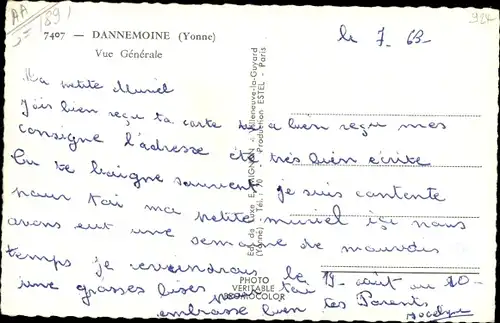 AA
89
924
7407 — DANNEMOINE (Yonne)
Vue Générale
le 7 63
Ma petite Muriel
J'ais bien reçu ta carte tu a bien reçu mes
consigne l'adresse été très bien écrite
Tu te baigne souvent je suis contente
pour toi ma petite muriel ici nous
avons eut une semaine de mauvais
temps je reviendrais le 19 août ou 20
une grosses bises pour toi
embrasse bien tes Parents
Jocelyne
Villeneuve-la-Guyard
(Yonne) Tél.
Production ESTEL - Paris
PHOTO
VERITABLE